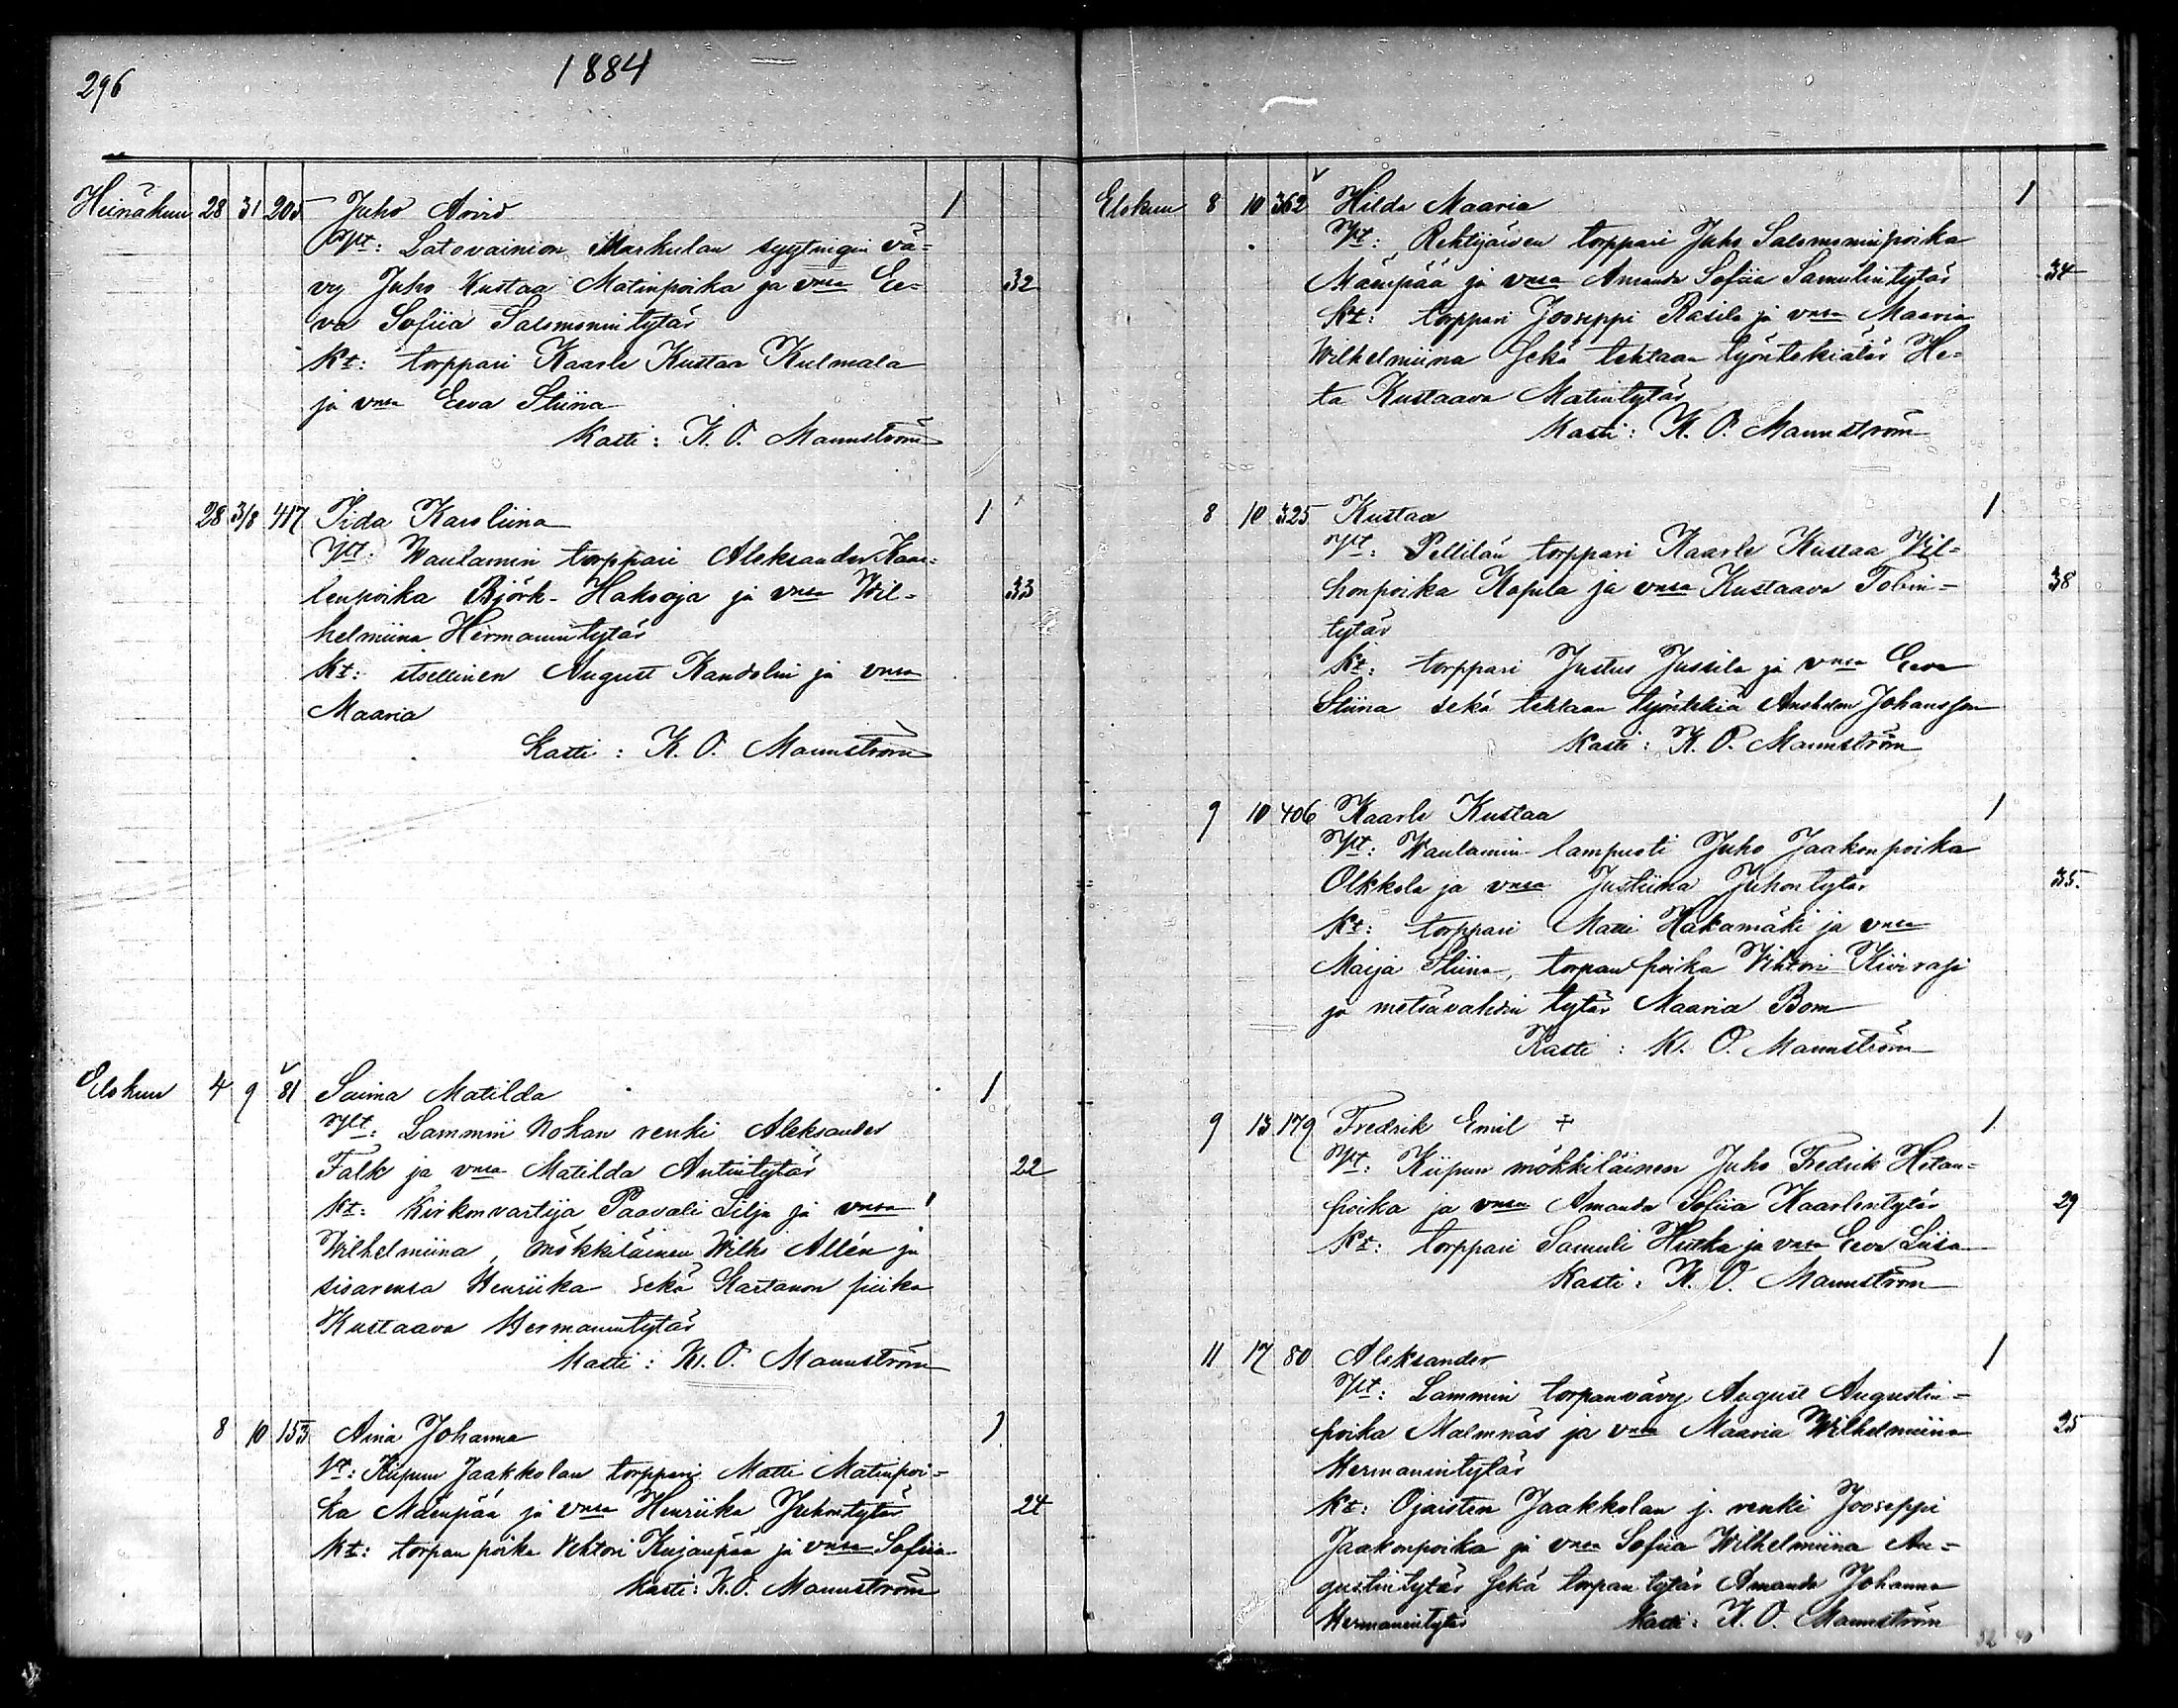 296
1884
Heinäkuu 28 31 205 Juho Arvid 1
Vt: Latovainion Markulan syytingin vä-
vy Juho Kustaa Matinpoika ja vnsa Ee- 32
va Sofiia Salomonintytär
Kt: torppari Kaarle Kustaa Kulmala
ja vnsa Eeva Stiina
Kasti: K. O. Mannström
28 3/8 417 Iida Karoliina 1
Vt: Vaulamin torppari Aleksander Kaar-
lenpoika Björk-Haksoja ja vnsa Wil- 33
helmiina Hermannintytär
Kt: itsellinen August Randolin ja vnsa
Maaria
Kasti: K. O. Mannström
Elokuu 4 9 81 Saima Matilda 1
Vlt: Lammin Nohan renki Aleksander
Falk ja vnsa Matilda Antintytär 22
Kt: Kirkonvartija Paavali Lilja ja vnsa
Wilhelmiina, mökkiläinen Wilho Allén ja
sisarensa Henriika sekä Kartanon piika
Kustaava Hermannintytär
Kasti: K. O. Mannström
8 10 153 Aina Johanna 1
Vt: Kiipun Jaakkolan torppari Matti Matinpoi-
ka Mäenpää ja vnsa Henriika Juhontytär 24
Kt: torpan poika Vihtori Kujanpää ja vnsa Sofiia
Kasti: K. O. Mannström
Elokuu 8 10 362 Hilda Maaria 1
Vt: Rehtijärven torppari Juho Salomoninpoika
Mäenpää ja vnsa Amanda Sofiia Samulintytär 34
Kt: torppari Jooseppi Rasila ja vnsa Maaria
Wilhelmiina sekä tehtaan työntekiätär He-
ta Kustaava Matintytär
Kasti: K. O. Mannström
8 10 325 Kustaa 1
Vt: Pellilän torppari Kaarle Kustaa Vil-
honpoika Kapila ja vnsa Kustaava Tobin- 38
tytär
Kt: torppari Justus Jussila ja vnsa Eeva
Stiina sekä tehtaan työntekiä Anshelm Johansson
Kasti: K. O. Mannström
9 10 406 Kaarle Kustaa 1
Vt: Vaulamin lampuoti Juho Jaakonpoika
Olkkola ja vnsa Justiina Juhontytär 35.
Kt: torppari Matti Hakamäki ja vnsa
Maija Stiina, torpan poika Vihtori Kiviraji
ja metsävahdin tytär Maaria Bom
Kasti: K. O. Mannström
9 13 179 Fredrik Emil + 1
Vt: Kiipun mökkiläinen Juho Fredrik Hetan-
poika ja vnsa Amanda Sofiia Kaarlentytär 29
Kt: torppari Samuli Hutka ja vnsa Eeva Liisa
Kasti: K. O. Mannström
11 17 80 Aleksander 1
Vt: Lammin torpanvävy August Augustin-
poika Malmnäs ja vnsa Maaria Wilhelmiina 25
Hermannintytär
Kt: Ojaisten Jaakkolan j. renki Jooseppi
Jaakonpoika ja vnsa Sofiia Wilhelmiina Au-
gustintytär sekä torpan tytär Amanda Johanna
Hermannintytär Kasti: K. O. Mannström